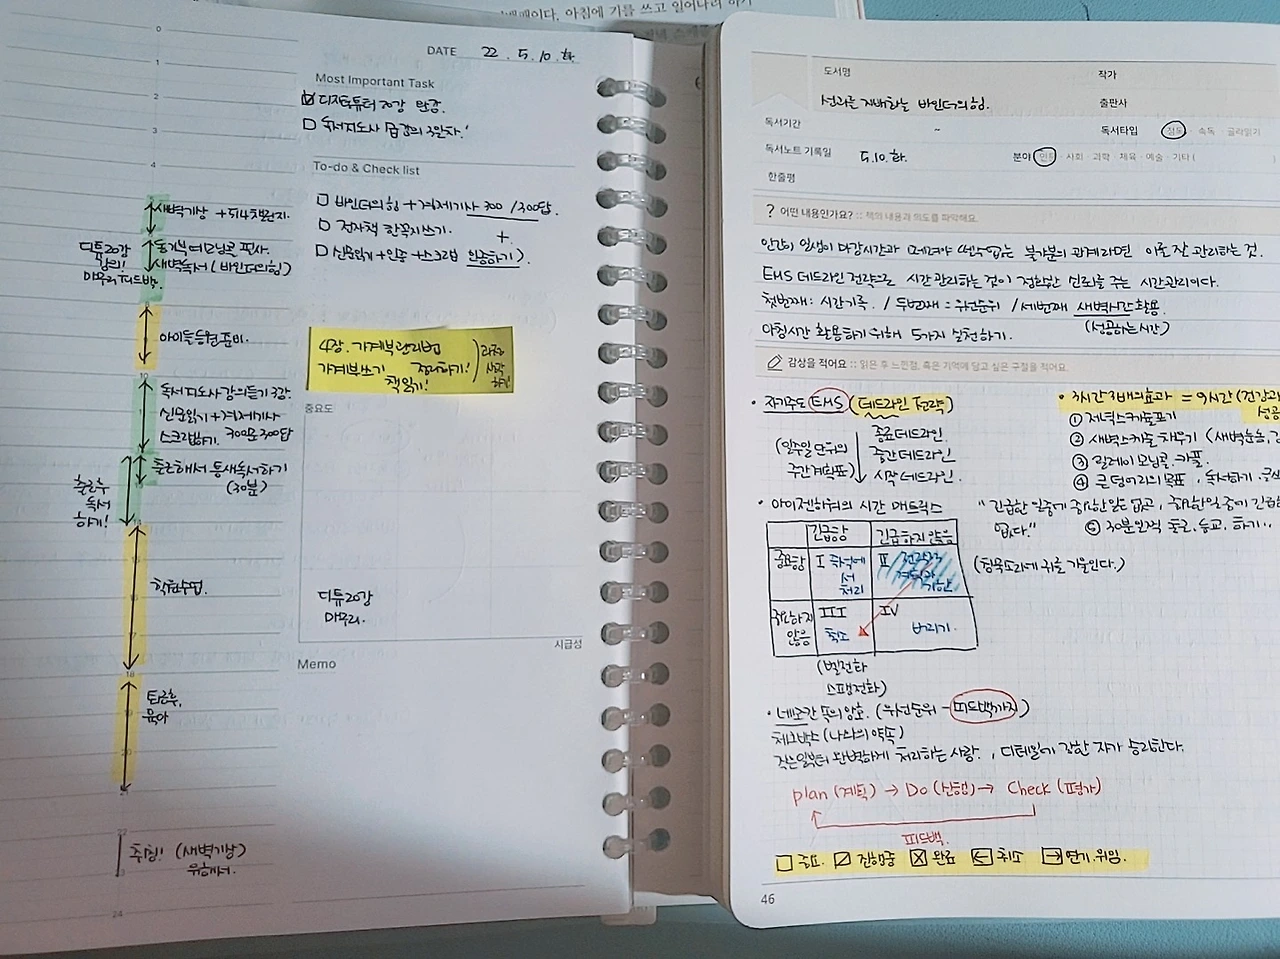 아침에 기를 쓰고 일어나려 하기
DATE 22. 5. 10. 화
0
1
2
3
4
새벽기상 + 514챌린지.
동기부여모닝콜 필사.
새벽독서 (바인더의힘)
디튜20강
강의!
마무리 피드백.
아이들등원준비.
10
독서지도사 강의듣기 3강.
신문읽기 + 경제기사
스크랩하기. 300문300답
출근해서 틈새독서하기
(30분)
출근후
독서
하기!
14
학원수업.
18
퇴근후,
육아
22
취침! (새벽기상)
위해서.
24
Most Important Task
☑ 디지털튜터 20강 완강.
☐ 독서지도사 급 강의 3일차!
To-do & Check list
☐ 바인더의힘 + 경제기사 300 / 300답.
☐ 전자책 한꼭지쓰기. +
☐ 신문읽기 + 인증 + 스크랩 인증하기).
4장. 가계부관리법
가계부쓰기 정리하기!
책읽기!
중요도
디튜20강
마무리.
시급성
Memo
도서명
성과를 지배하는 바인더의 힘.
작가
출판사
독서기간 ~
독서타입 정독 · 속독 · 골라읽기
독서노트 기록일 5.10.화.
분야 인문 · 사회 · 과학 · 체육 · 예술 · 기타 (
한줄평
? 어떤 내용인가요? :: 책의 내용과 의도를 파악해요.
인간이 일생이 마감시간과 떼려야 뗄수없는 불가분의 관계라면 이를 잘 관리하는 것.
EMS 데드라인 전략으로 시간관리하는 것이 정확한 신뢰를 주는 시간관리이다.
첫번째: 시간기록. / 두번째 = 우선순위 / 세번째 새벽시간활용.
(성공하는시간)
아침시간 활용하기 위해 5가지 실천하기.
감상을 적어요 :: 읽은 후 느낀점, 혹은 기억에 담고 싶은 구절을 적어요.
· 자기주도 EMS (데드라인 전략)
(일주일 단위의
주간계획표)
종료데드라인.
중간데드라인
시작데드라인.
· 3시간 3배의효과 = 9시간 (건강과
성공
① 저녁스케줄포기
② 새벽스케줄 채우기
③ 릴레이 모닝콜. 카풀.
④ 큰 덩어리의 목표, 독서하기.
⑤ 30분일찍 출근, 등교, 하기..
· 아이젠하워의 시간 매트릭스
긴급함
긴급하지 않음
중요함
I 즉석에
서
처리
II 전략적
계획과
중요하지
않음
III
축소
IV
버리기.
(벨전화
스팸전화)
"긴급한 일중에 중요한일은 없고, 중요한일 중에 긴급
없다."
(침묵소리에 귀를 기울인다.)
· 네모칸 속의 암호. (우선순위 - 피드백까지)
체크박스 (나와의 약속)
작은일부터 완벽하게 처리하는 사람., 디테일이 강한 자가 승리한다.
plan (계획) → Do (실행) → Check (평가)
피드백.
☐ 중요. ☐ 진행중 ☒ 완료 ← 취소 → 연기.위임.
46